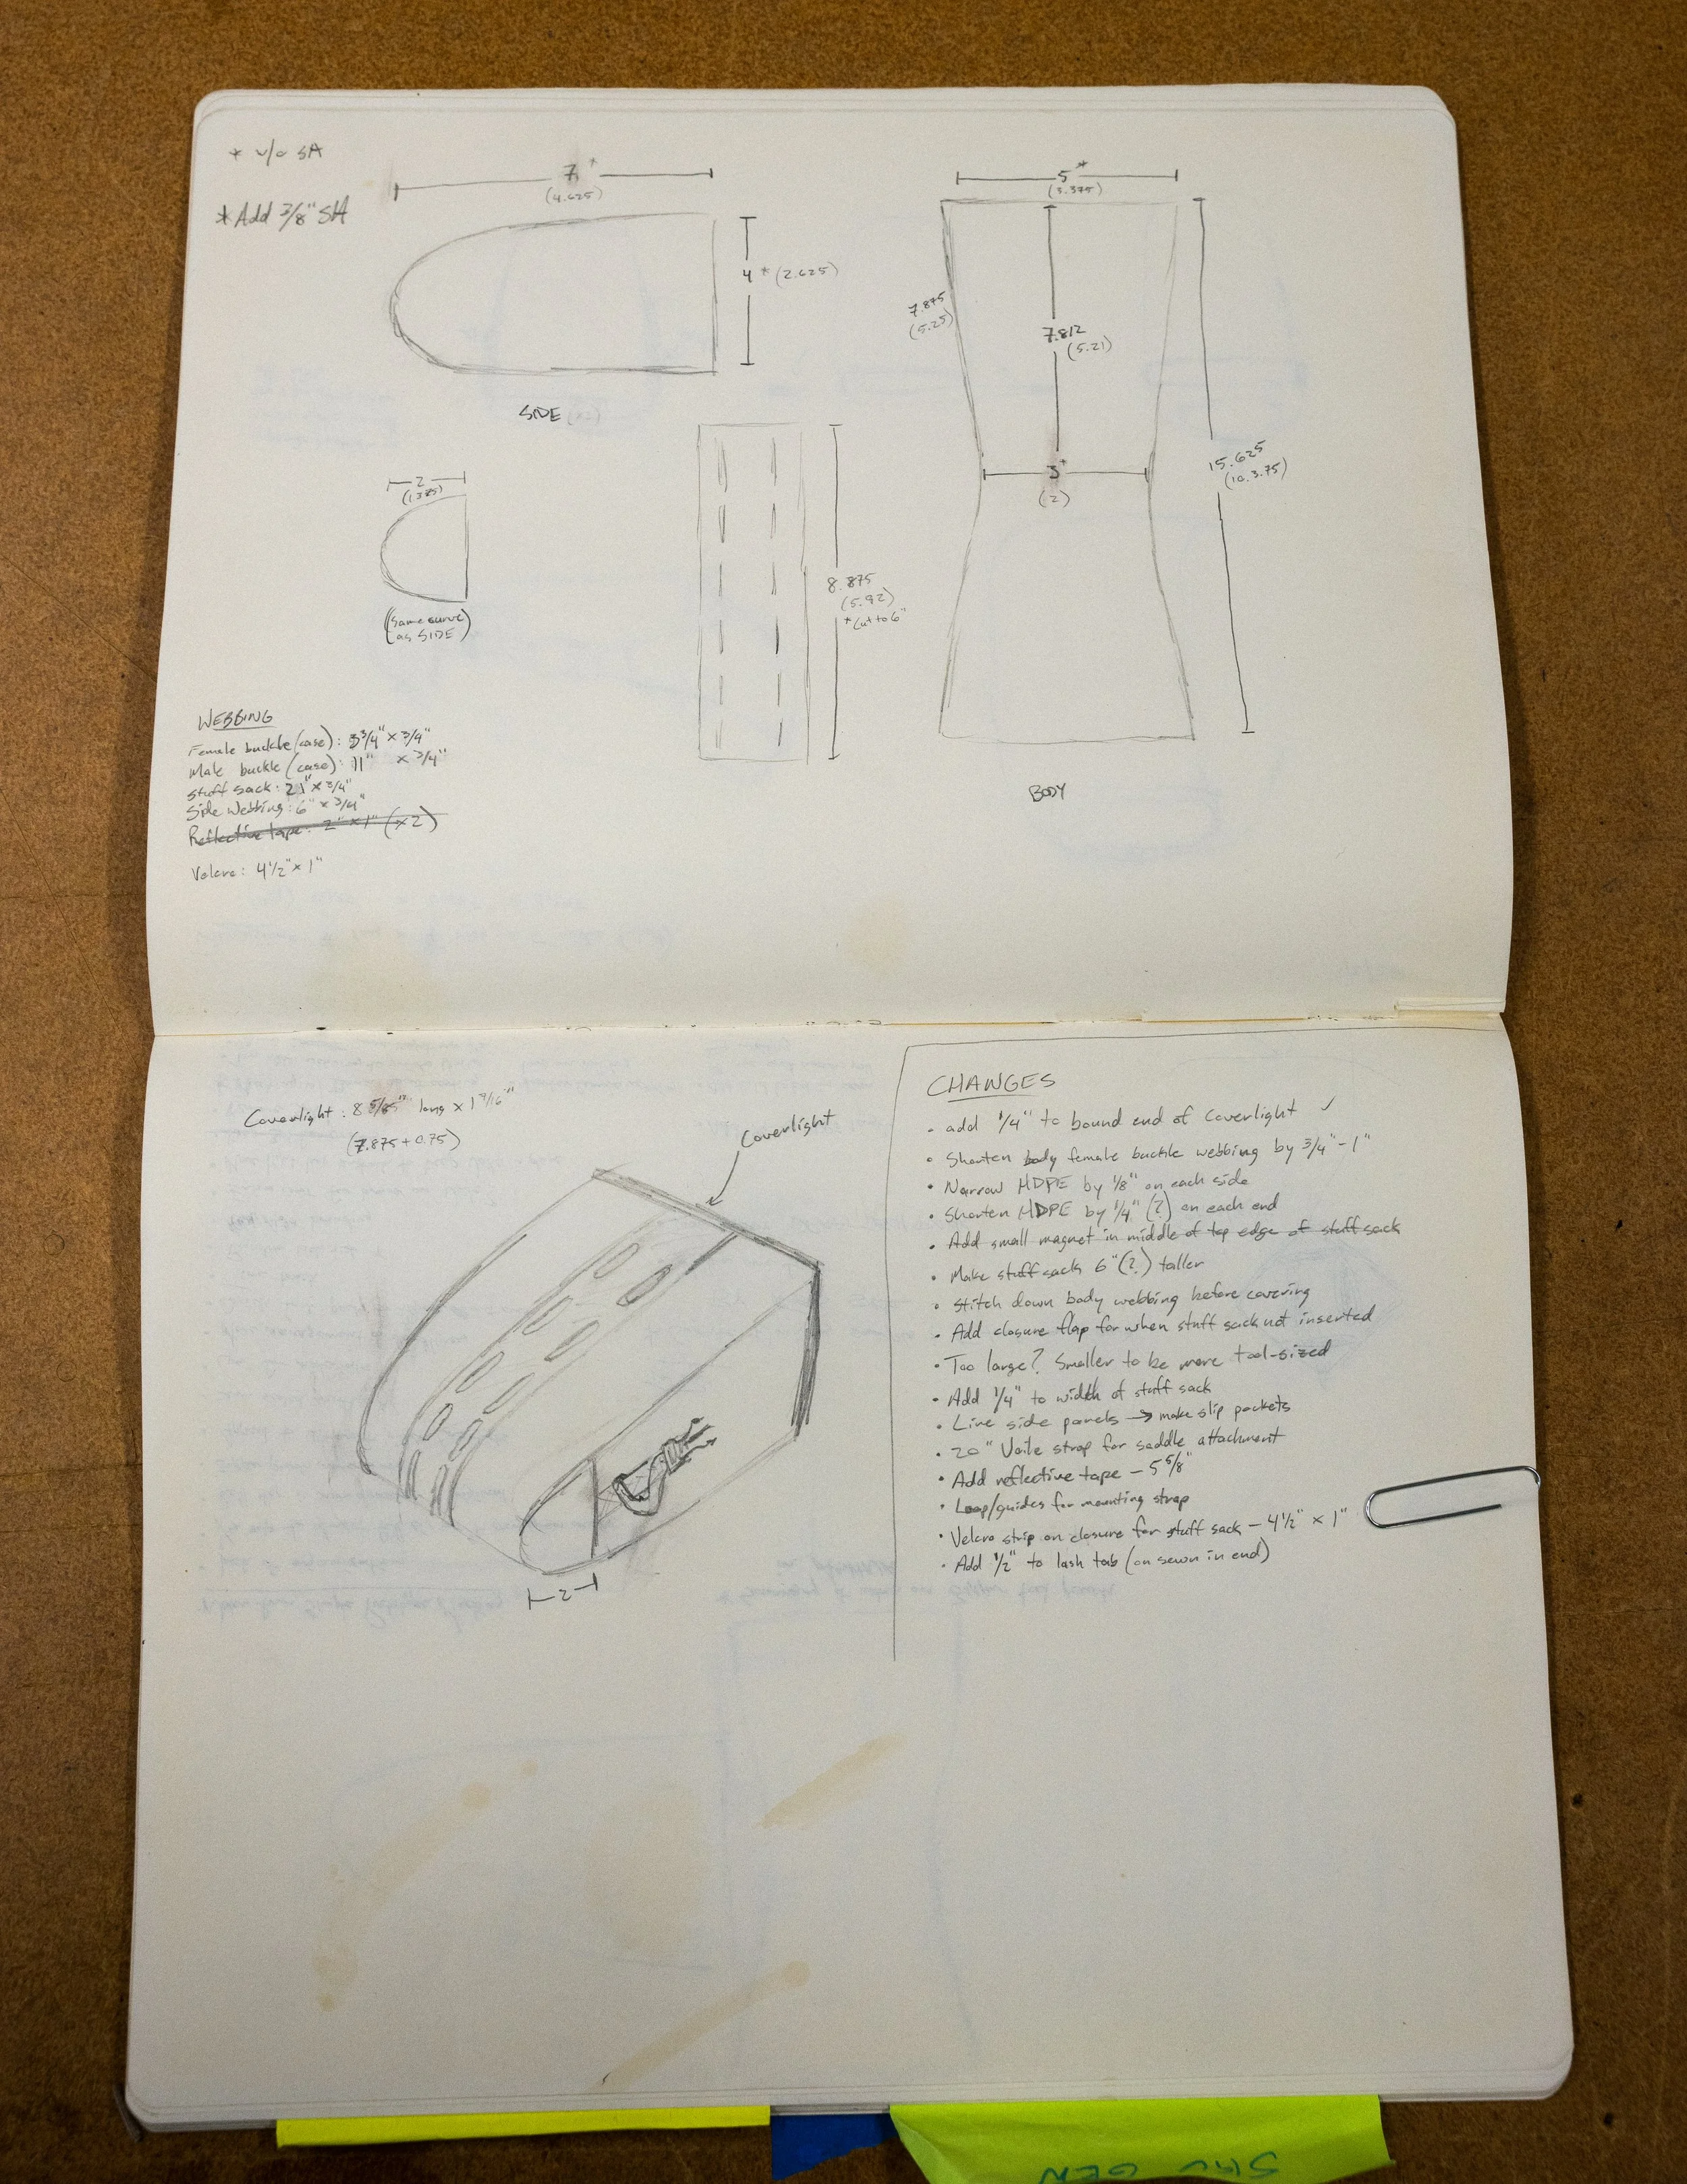 * w/o SA
*Add 3/8" SA
7*
(4.625)
4* (2.625)
SIDE
2
(same curve
as SIDE)
8.875
(5.92)
*Cut to 6"
5*
(3.375)
7.875
(5.25)
7.812
(5.21)
3*
(2)
15.625
(10.3.75)
BODY
WEBBING
Female buckle (case): 3 3/4" x 3/4"
Male buckle (case): 11" x 3/4"
Stuff sack: 21" x 3/4"
Side Webbing: 6" x 3/4"
Reflective tape: 2" x 1" (x2)
Velcro: 4 1/2" x 1"
Coverlight: 8 5/8" long x 1 9/16"
(7.875+0.75)
Coverlight
2
CHANGES
• add 1/4" to bound end of coverlight ✓
• Shorten body female buckle webbing by 3/4"-1"
• Narrow HDPE by 1/8" on each side
• Shorten HDPE by 1/4" (?) on each end
• Add small magnet in middle of top edge of stuff sack
• Make stuff sack 6" (?) taller
• Stitch down body webbing before covering
• Add closure flap for when stuff sack not inserted
• Too large? Smaller to be more tool-sized
• Add 1/4" to width of stuff sack
• Line side panels → make slip pockets
• 20" Voile strap for saddle attachment
• Add reflective tape - 5 5/8"
• Loop/guides for mounting strap
• Velcro strip on closure for stuff sack - 4 1/2" x 1"
• Add 1/2" to lash tab (on sewn in end)
GEN